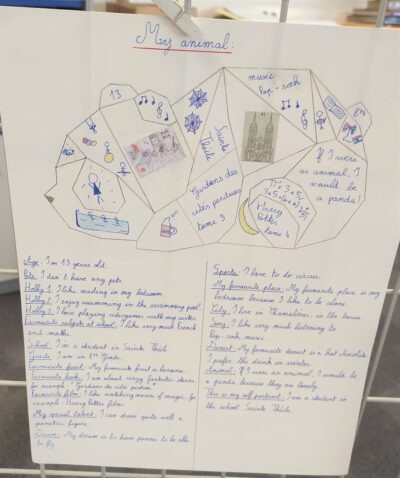 My animal.
13
music
Pop-rock
8th
Sainte
Thècle
Gardiens des
cités perdues
tome 3
If I were
an animal, I
would be
a panda!
Harry
Potter
tome 4
Age: I'm 13 years old.
Pets: I don't have any pets.
Hobby 1: I like reading in my bedroom.
Hobby 2: I enjoy swimming in the swimming pool.
Hobby 3: I love playing videogames with my sister.
Favourite subjects at school: I like very much French
and maths.
School: I'm a student in Sainte Thècle.
Grade: I am in 8th Grade.
Favourite fruit: My favourite fruit is banana.
Favourite book: I am about crazy fantastic stories
for example "Gardiens des cités perdues".
Favourite film: I like watching movies of magic, for
example Harry Potter films.
My special talent: I can draw quite well a
geometric figure.
Dream: My dream is to have powers to be able
to fly.
Sports: I have to do circus.
My favourite place: My favourite place is my
bedroom because I like to be alone.
City: I live in Chamalières, in the house.
Song: I like very much listening to
Pop-rock music.
Dessert: My favourite desert is a hot chocolate
I prefer the drink in winter.
Animal: If I were an animal, I would be
a panda because they are lovely.
This is my self portrait: I am a student in
the school Sainte Thècle.